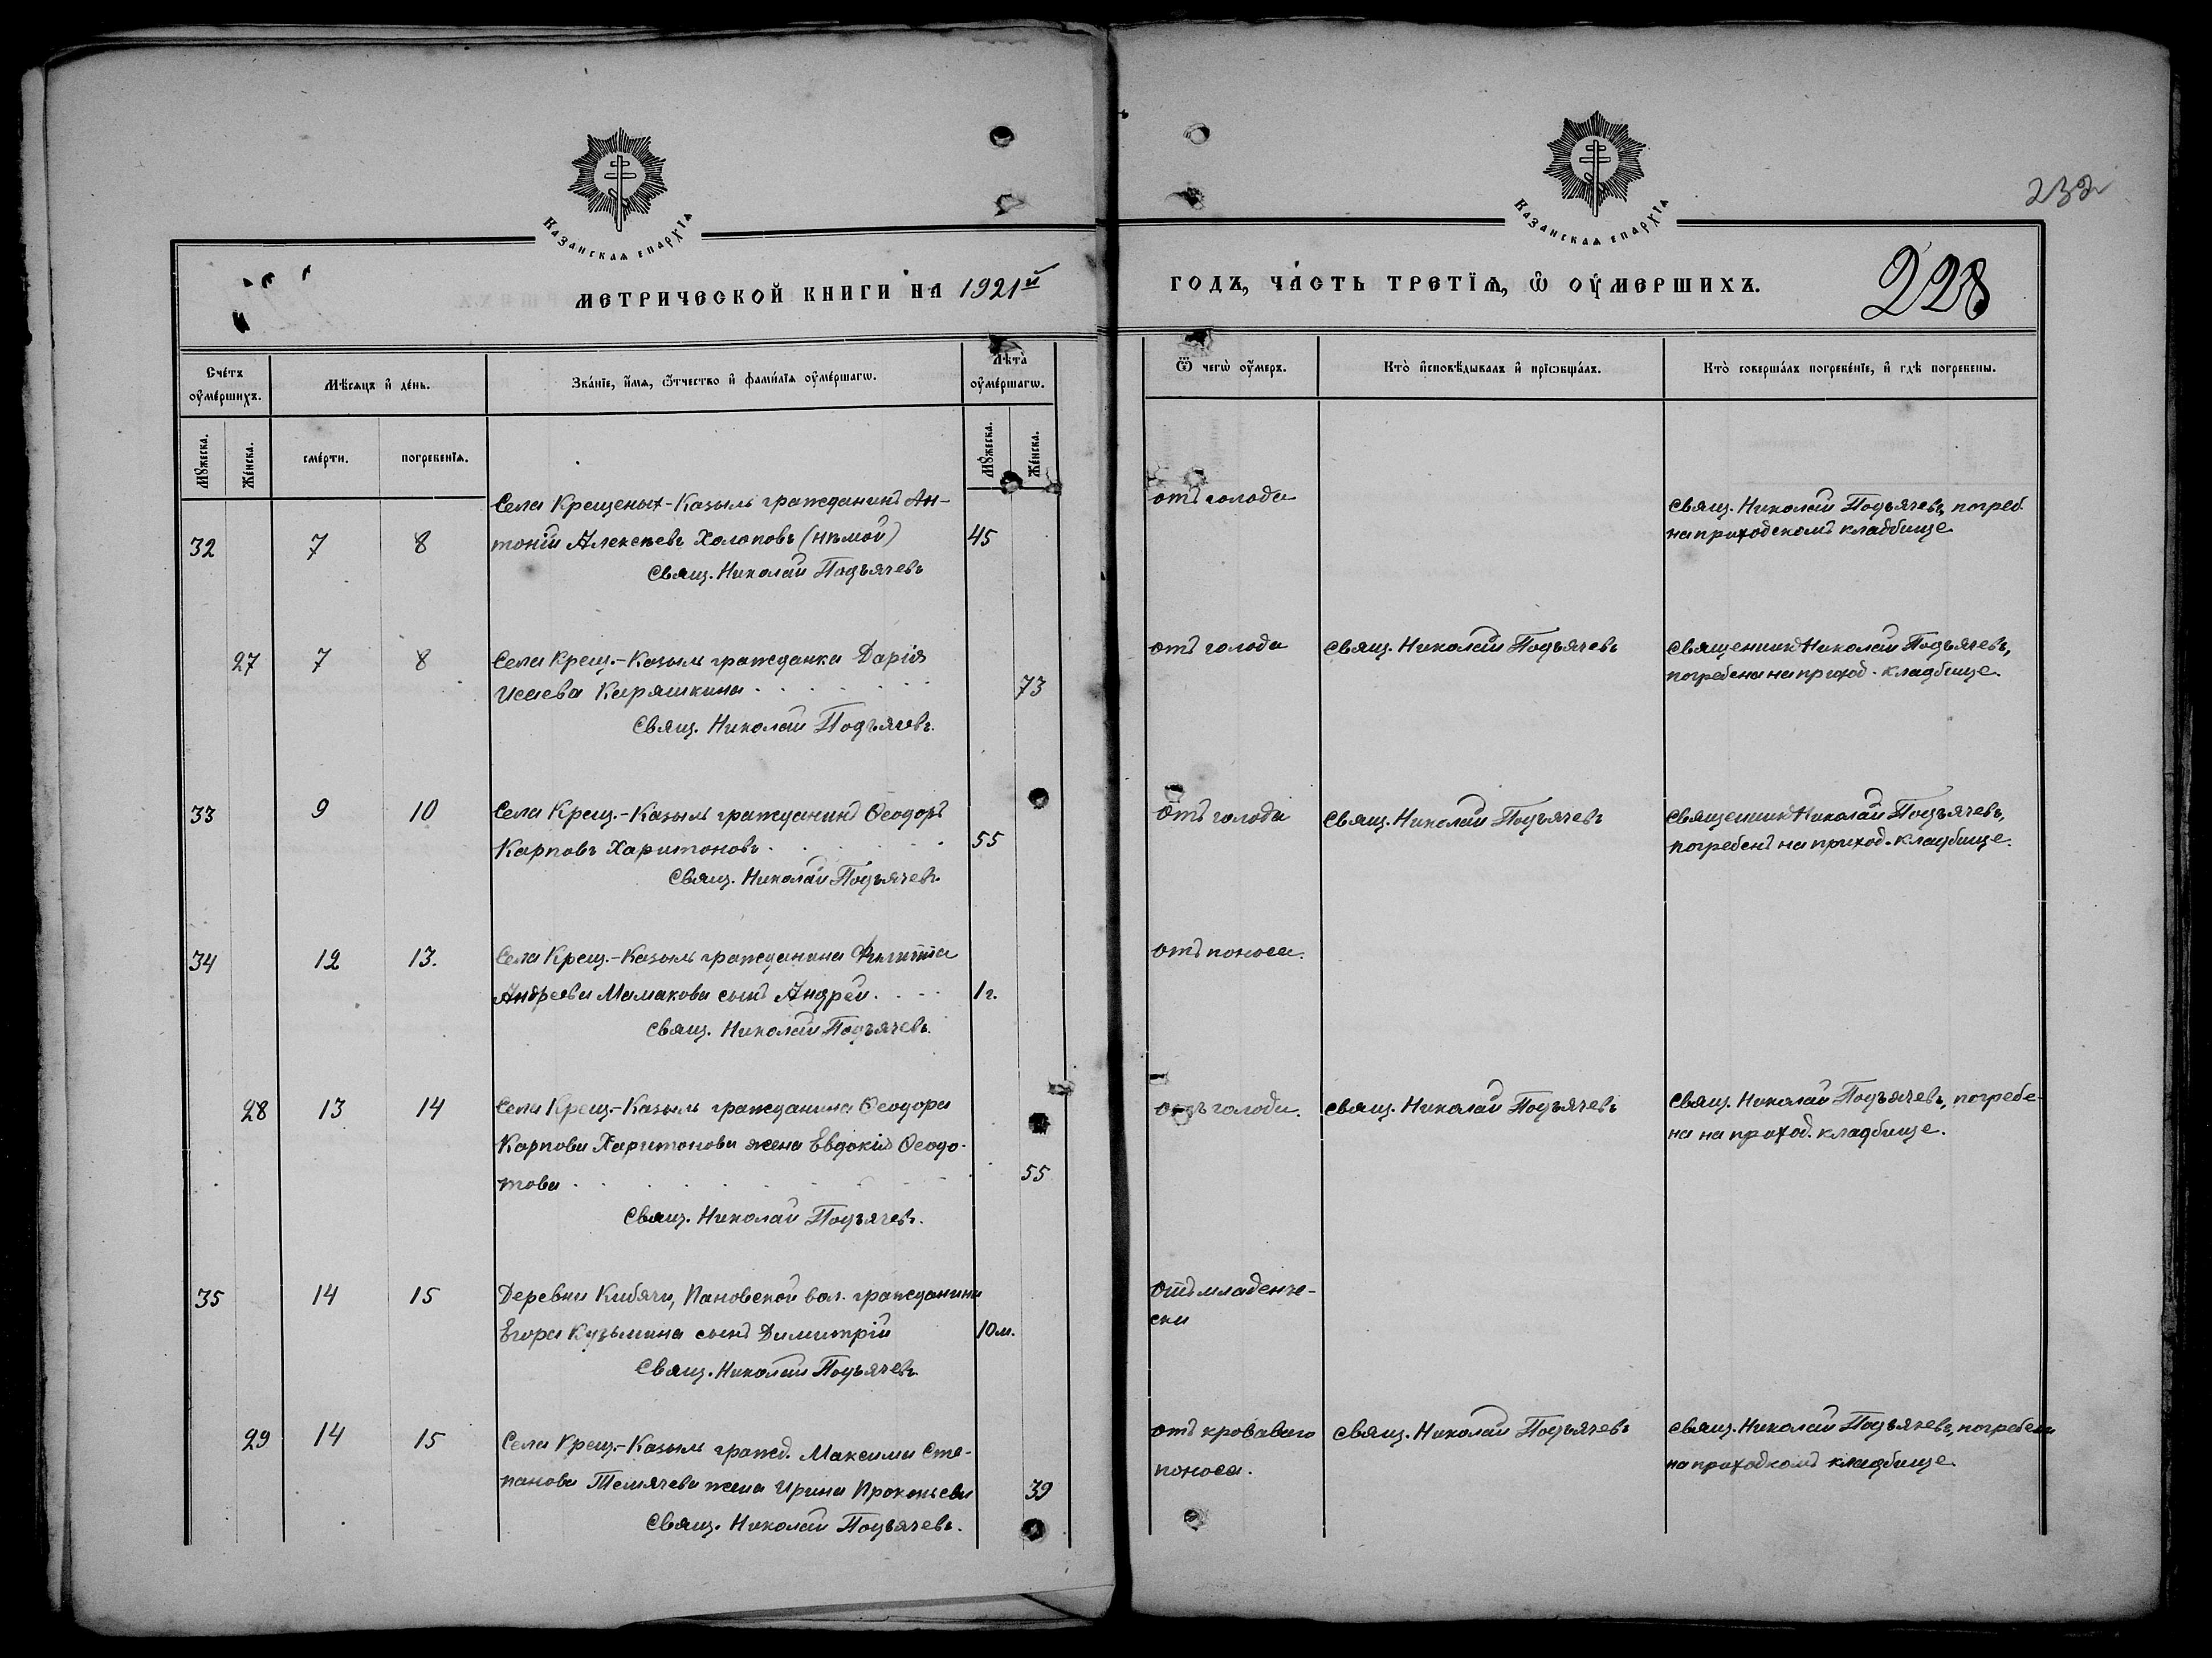 232
Казанская епархїа
Казанская епархїа
метрической книги на 1921й
годъ, часть третїѧ, ѿ оумершихъ.
228
Счетъ оумершихъ.
Мѣсяцъ и день.
Званїе, имѧ, ѿтчество и фамилїѧ оумершагѡ.
Лѣта оумершагѡ.
Ѿ чегѡ оумеръ.
Кто исповѣдывалъ и прїѡбщалъ.
Кто совершалъ погребенїе, и гдѣ погребены.
Мꙋжеска.
Женска.
смерти.
погребенїѧ.
Мꙋжеска.
Женска.
Села Крещеных-Казыль гражданинъ Ан-
32 7 8 тоній Алексѣевъ Холоповъ (нѣмой) 45
Свящ. Николай Подъячевъ
отъ голода
Свящ. Николай Подъячевъ, погреб.
на приходскомъ кладбище
27 7 8 Села Крещ.-Казыль гражданка Дарія
Исаева Каряшкина 73
Свящ. Николай Подъячевъ.
отъ голода Свящ. Николай Подъячевъ Священникъ Николай Подъячевъ,
погребена на приход. кладбище.
33 9 10 Села Крещ.-Казыль гражданинъ Ѳеодоръ
Карповъ Харитоновъ 55
Свящ. Николай Подъячевъ.
отъ голода Свящ. Николай Подъячевъ Священникъ Николай Подъячевъ,
погребенъ на приход. кладбище.
34 12 13. Села Крещ.-Казыль гражданина
Андреева Мамакова сынъ Андрей 1 г.
Свящ. Николай Подъячевъ.
отъ поноса.
28 13 14 Села Крещ.-Казыль гражданина Ѳеодора
Карпова Харитонова жена Евдокія Ѳеодо-
това 55
Свящ. Николай Подъячевъ.
отъ голода. Свящ. Николай Подъячевъ Свящ. Николай Подъячевъ, погребе-
на на приход. кладбище.
35 14 15 Деревни Кибячи, Пановской вол. гражданина
Егора Кузьмина сынъ Димитрій 10 м.
Свящ. Николай Подъячевъ.
отъ младенче-
ски
29 14 15 Села Крещ.-Казыль гражд. Максима Сте-
панова Темячева жена Ирина Прокопьева 39
Свящ. Николай Подъячевъ.
отъ кроваваго Свящ. Николай Подъячевъ Свящ. Николай Подъячевъ, погребена
поноса. на приходкомъ кладбище.